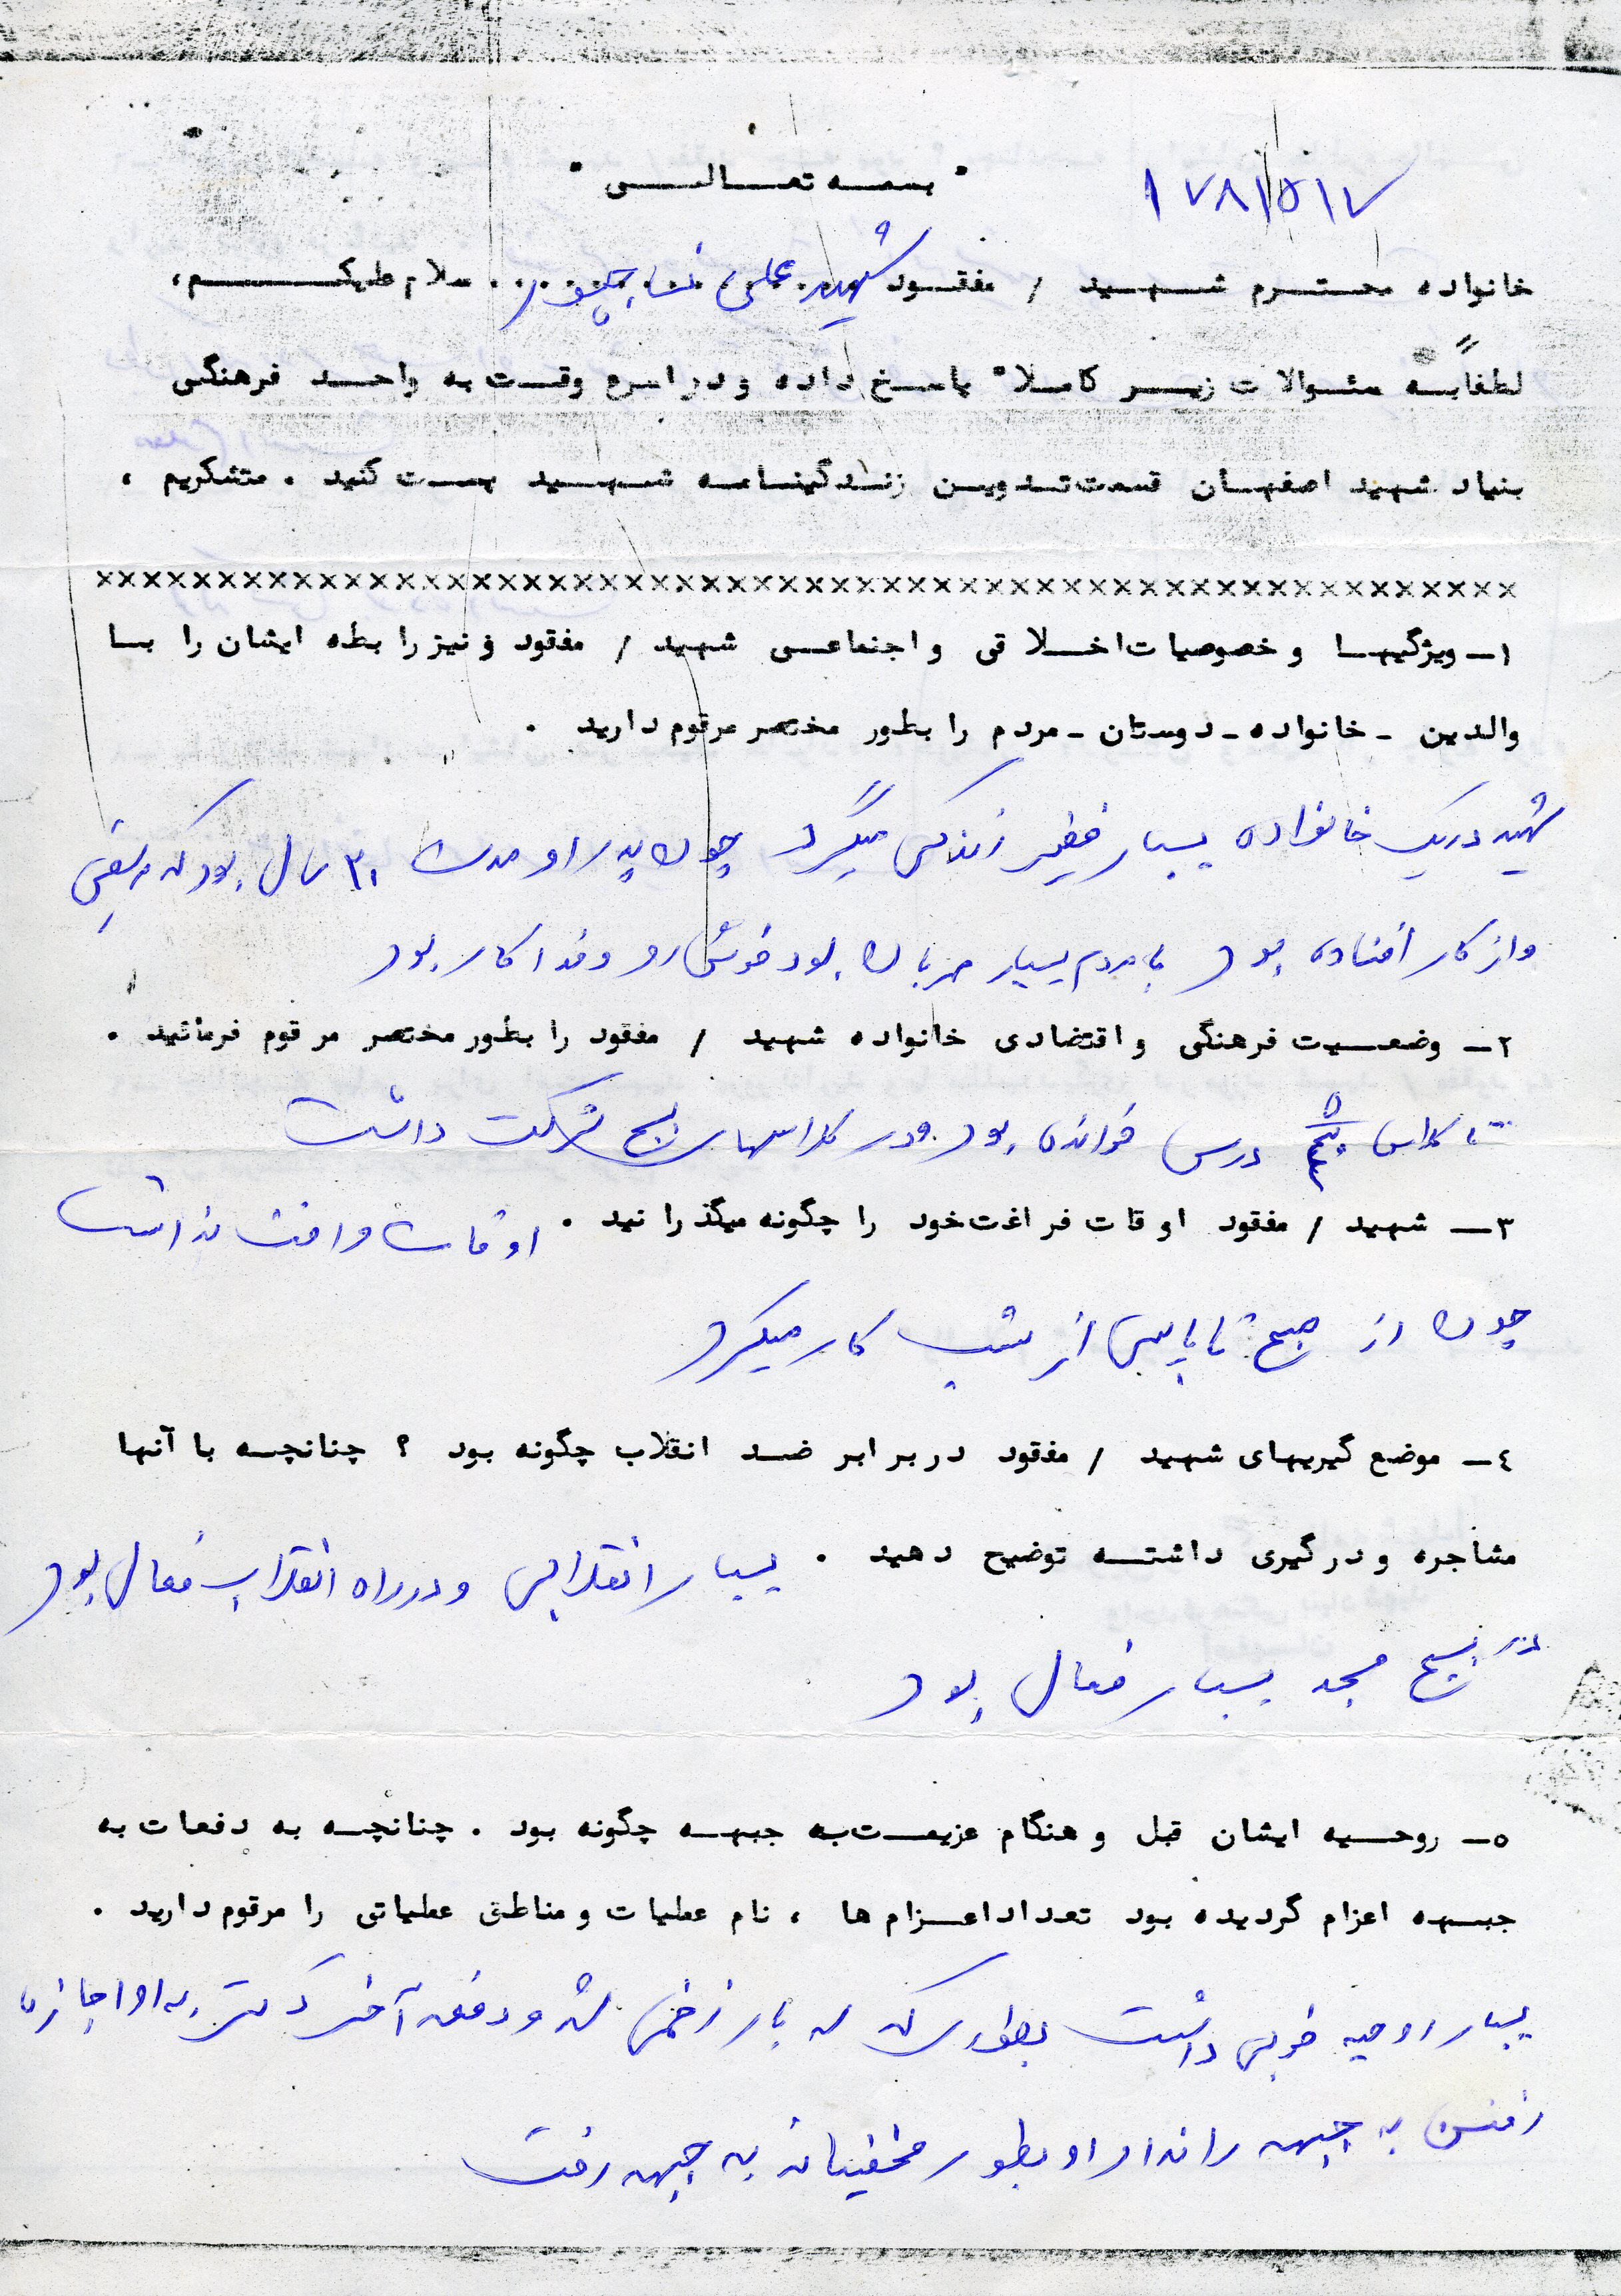 "بسمه تعالی"
۱۷۸۱۵۱۷
خانواده محترم شهید / مفقود شهید علی نساجپور سلام علیکم،
لطفاً به سئوالات زیر کاملا" پاسخ داده و در اسرع وقت به واحد فرهنگی
بنیاد شهید اصفهان قسمت تدوین زندگینامه شهید پست کنید . متشکریم ،
××××××××××××××××××××××××××××××××××××××××××××××××××××××××
۱ـ ویژگیها و خصوصیات اخلاقی و اجتماعی شهید / مفقود و نیز رابطه ایشان را با
والدین ـ خانواده ـ دوستان ـ مردم را بطور مختصر مرقوم دارید .
شهید در یک خانواده بسیار فقیر زندگی میکرد چون پدر او مدت ۳۰ سال بود که مریض
و از کار افتاده بود با مردم بسیار مهربان بود خوش رو و فداکار بود
۲ـ وضعیت فرهنگی و اقتضادی خانواده شهید / مفقود را بطور مختصر مرقوم فرمائید .
تا کلاس ۵ پنجم درس خوانده بود و در کلاسهای بسیج شرکت داشت
۳ـ شهید / مفقود اوقات فراغت خود را چگونه میگذرانید . اوقات فراقت نداشت
چون از صبح تا پاسی از شب کار میکرد
٤ـ موضع گیریهای شهید / مفقود در برابر ضد انقلاب چگونه بود ؟ چنانچه با آنها
مشاجره و درگیری داشته توضیح دهید . بسیار انقلابی و در راه انقلاب فعال بود
در بسیج مسجد بسیار فعال بود
۵ـ روحیه ایشان قبل و هنگام عزیمت به جبهه چگونه بود . چنانچه به دفعات به
جبهه اعزام گردیده بود تعداد اعزام ها ، نام عملیات و مناطق عملیاتی را مرقوم دارید .
بسیار روحیه خوبی داشت بطوری که سه بار زخمی شد و دفعه آخر دکتر به او اجازه
رفتن به جبهه را نداد او بطور مخفیانه به جبهه رفت